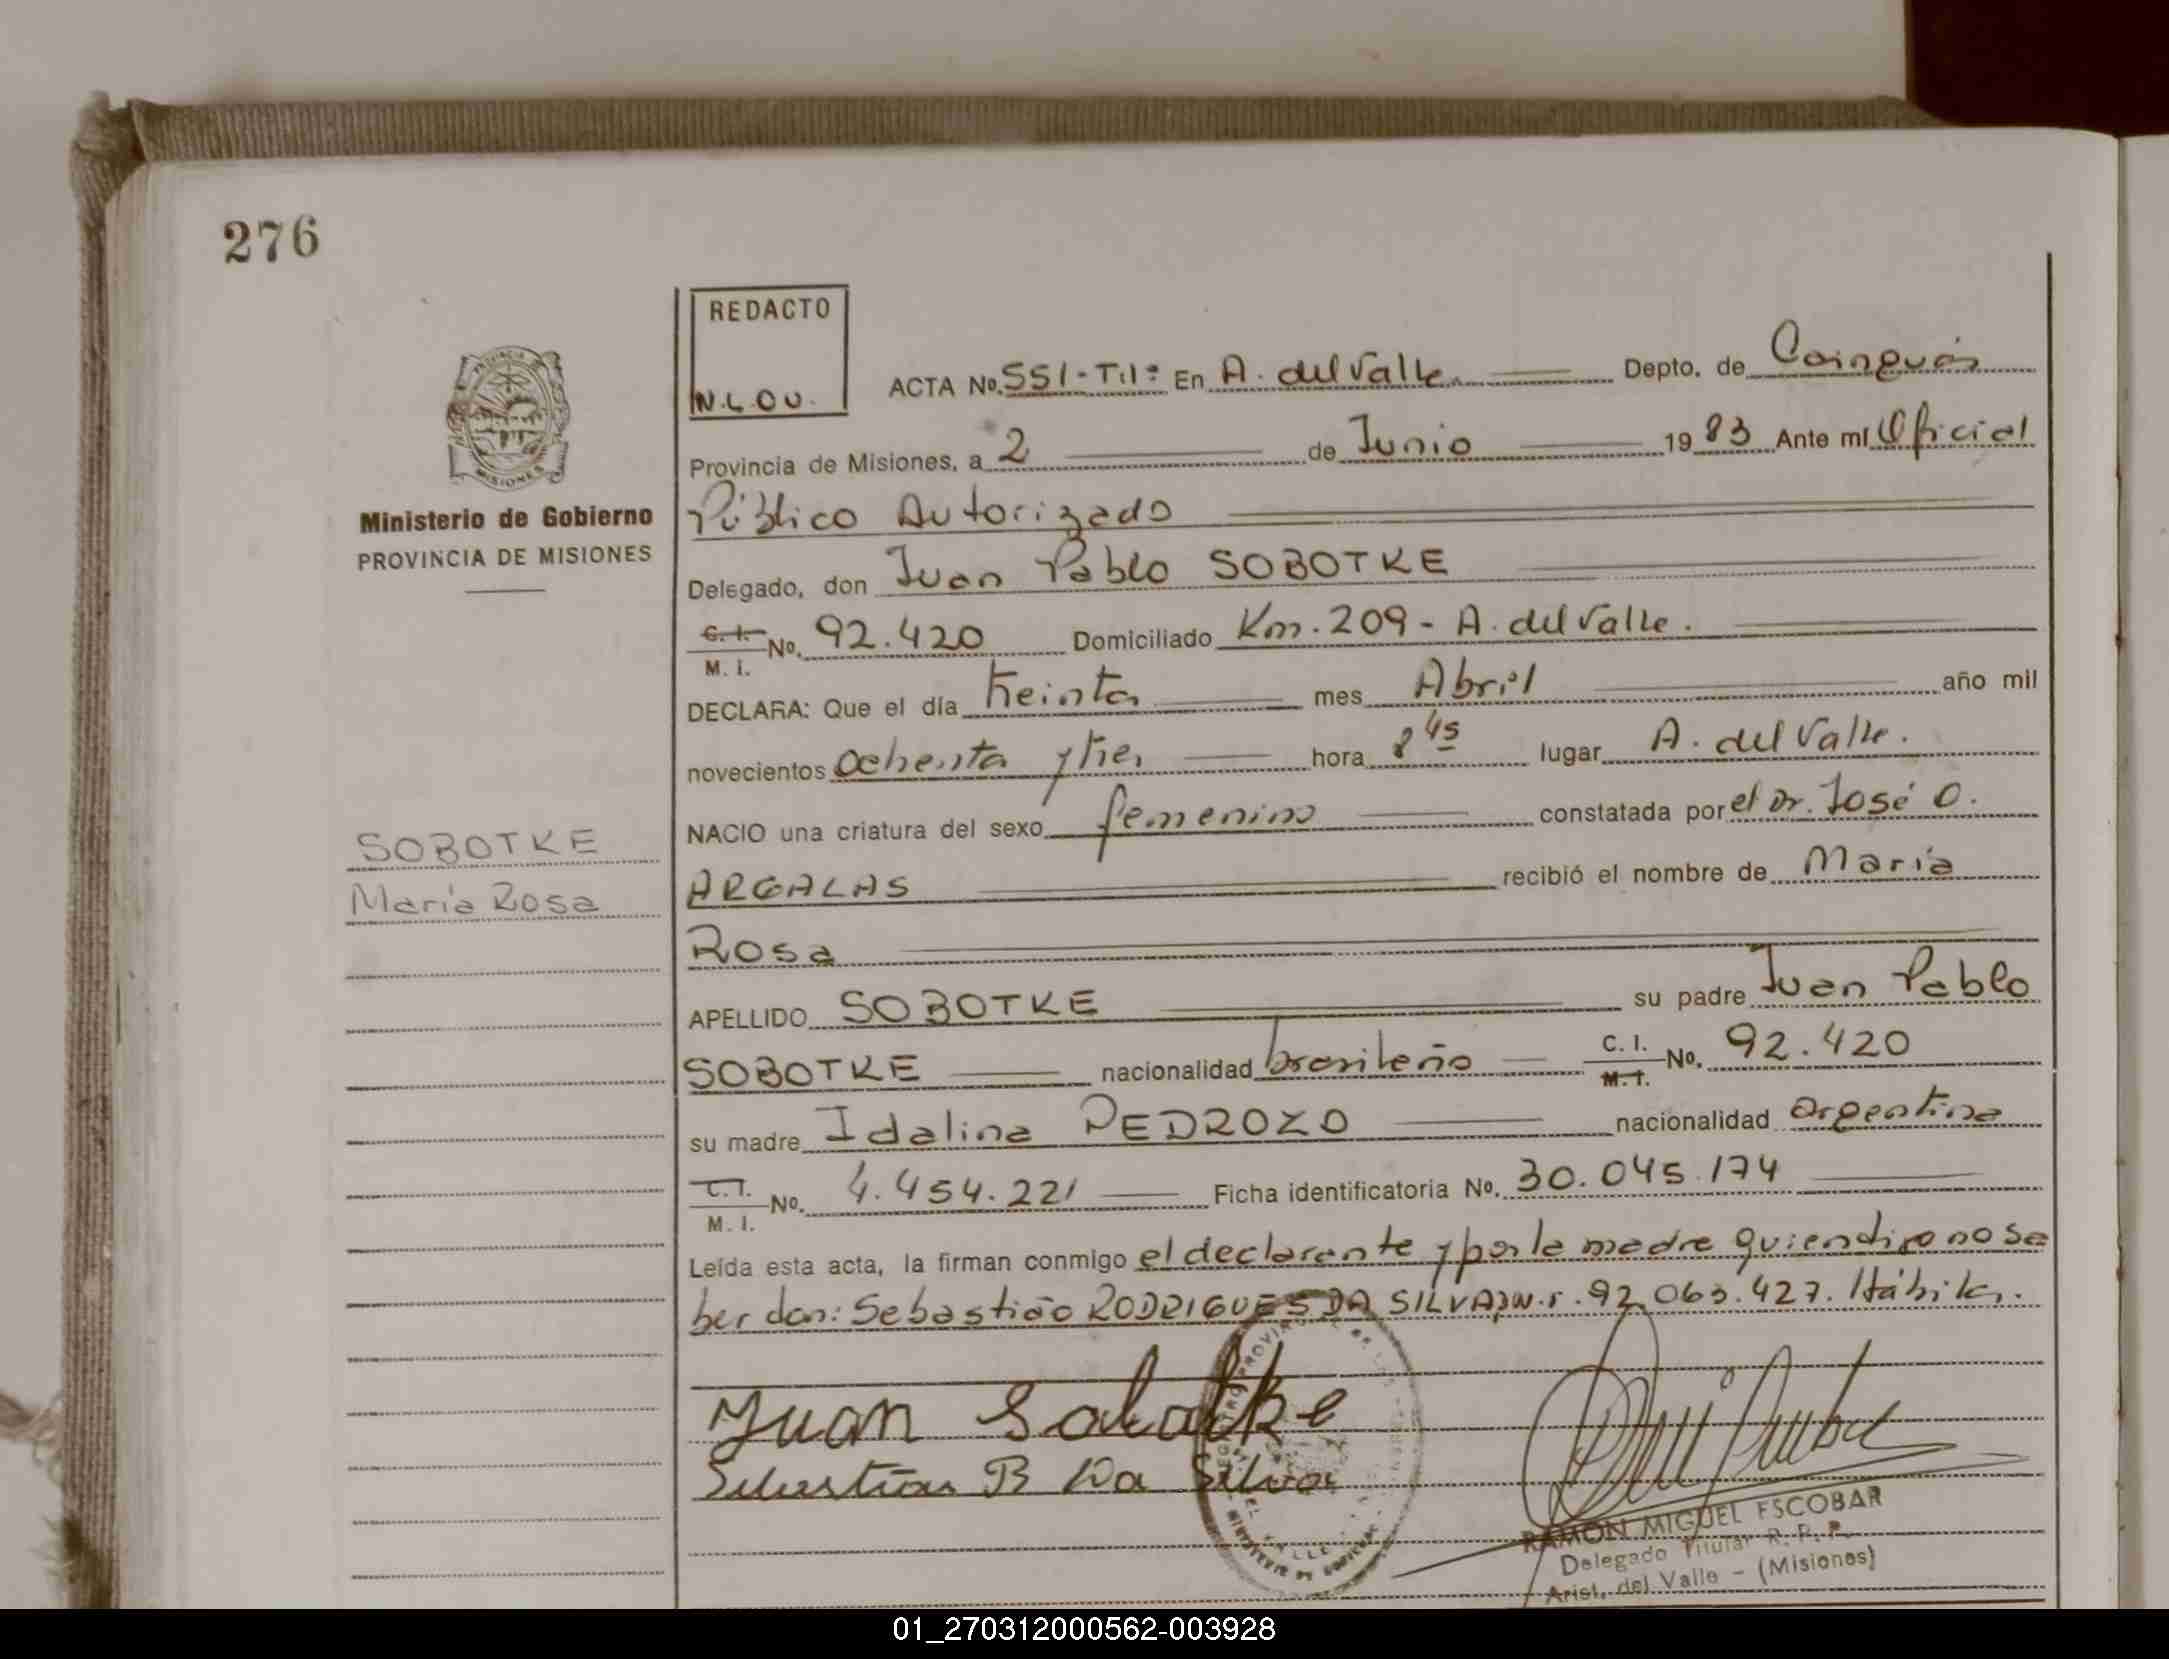 276
REDACTO
N.L.O.U.
ACTA No. 551-T:1º En A. del Valle. Depto. de Cainguás
Provincia de Misiones, a 2 de Junio 1983 Ante mí Oficial
Público Autorizado
Delegado, don Juan Pablo SOBOTKE
C. I.
M. I.
No. 92.420 Domiciliado Km. 209 - A. del Valle.
DECLARA: Que el día treinta mes Abril año mil
novecientos ochenta y tres hora 8 45 lugar A. del Valle.
NACIO una criatura del sexo femenino constatada por el Dr. José O.
ARGALAS recibió el nombre de María
Rosa
APELLIDO SOBOTKE su padre Juan Pablo
SOBOTKE nacionalidad brasileño C. I. No. 92.420
M. I.
su madre Idalina PEDROZO nacionalidad argentina
C. I.
M. I.
No. 4.454.221 Ficha identificatoria No. 30.045.174
Leída esta acta, la firman conmigo el declarante y por la madre quien dijo no sa
ber don: Sebastião RODRIGUES DA SILVA, 92.063.427. Hábiles.
Juan Sobotke
Sebastião R Da Silva
RAMON MIGUEL ESCOBAR
Delegado Titular R. P. P.
Arist. del Valle - (Misiones)
PROVINCIA DE
MISIONES
Ministerio de Gobierno
PROVINCIA DE MISIONES
SOBOTKE
María Rosa
01_270312000562-003928